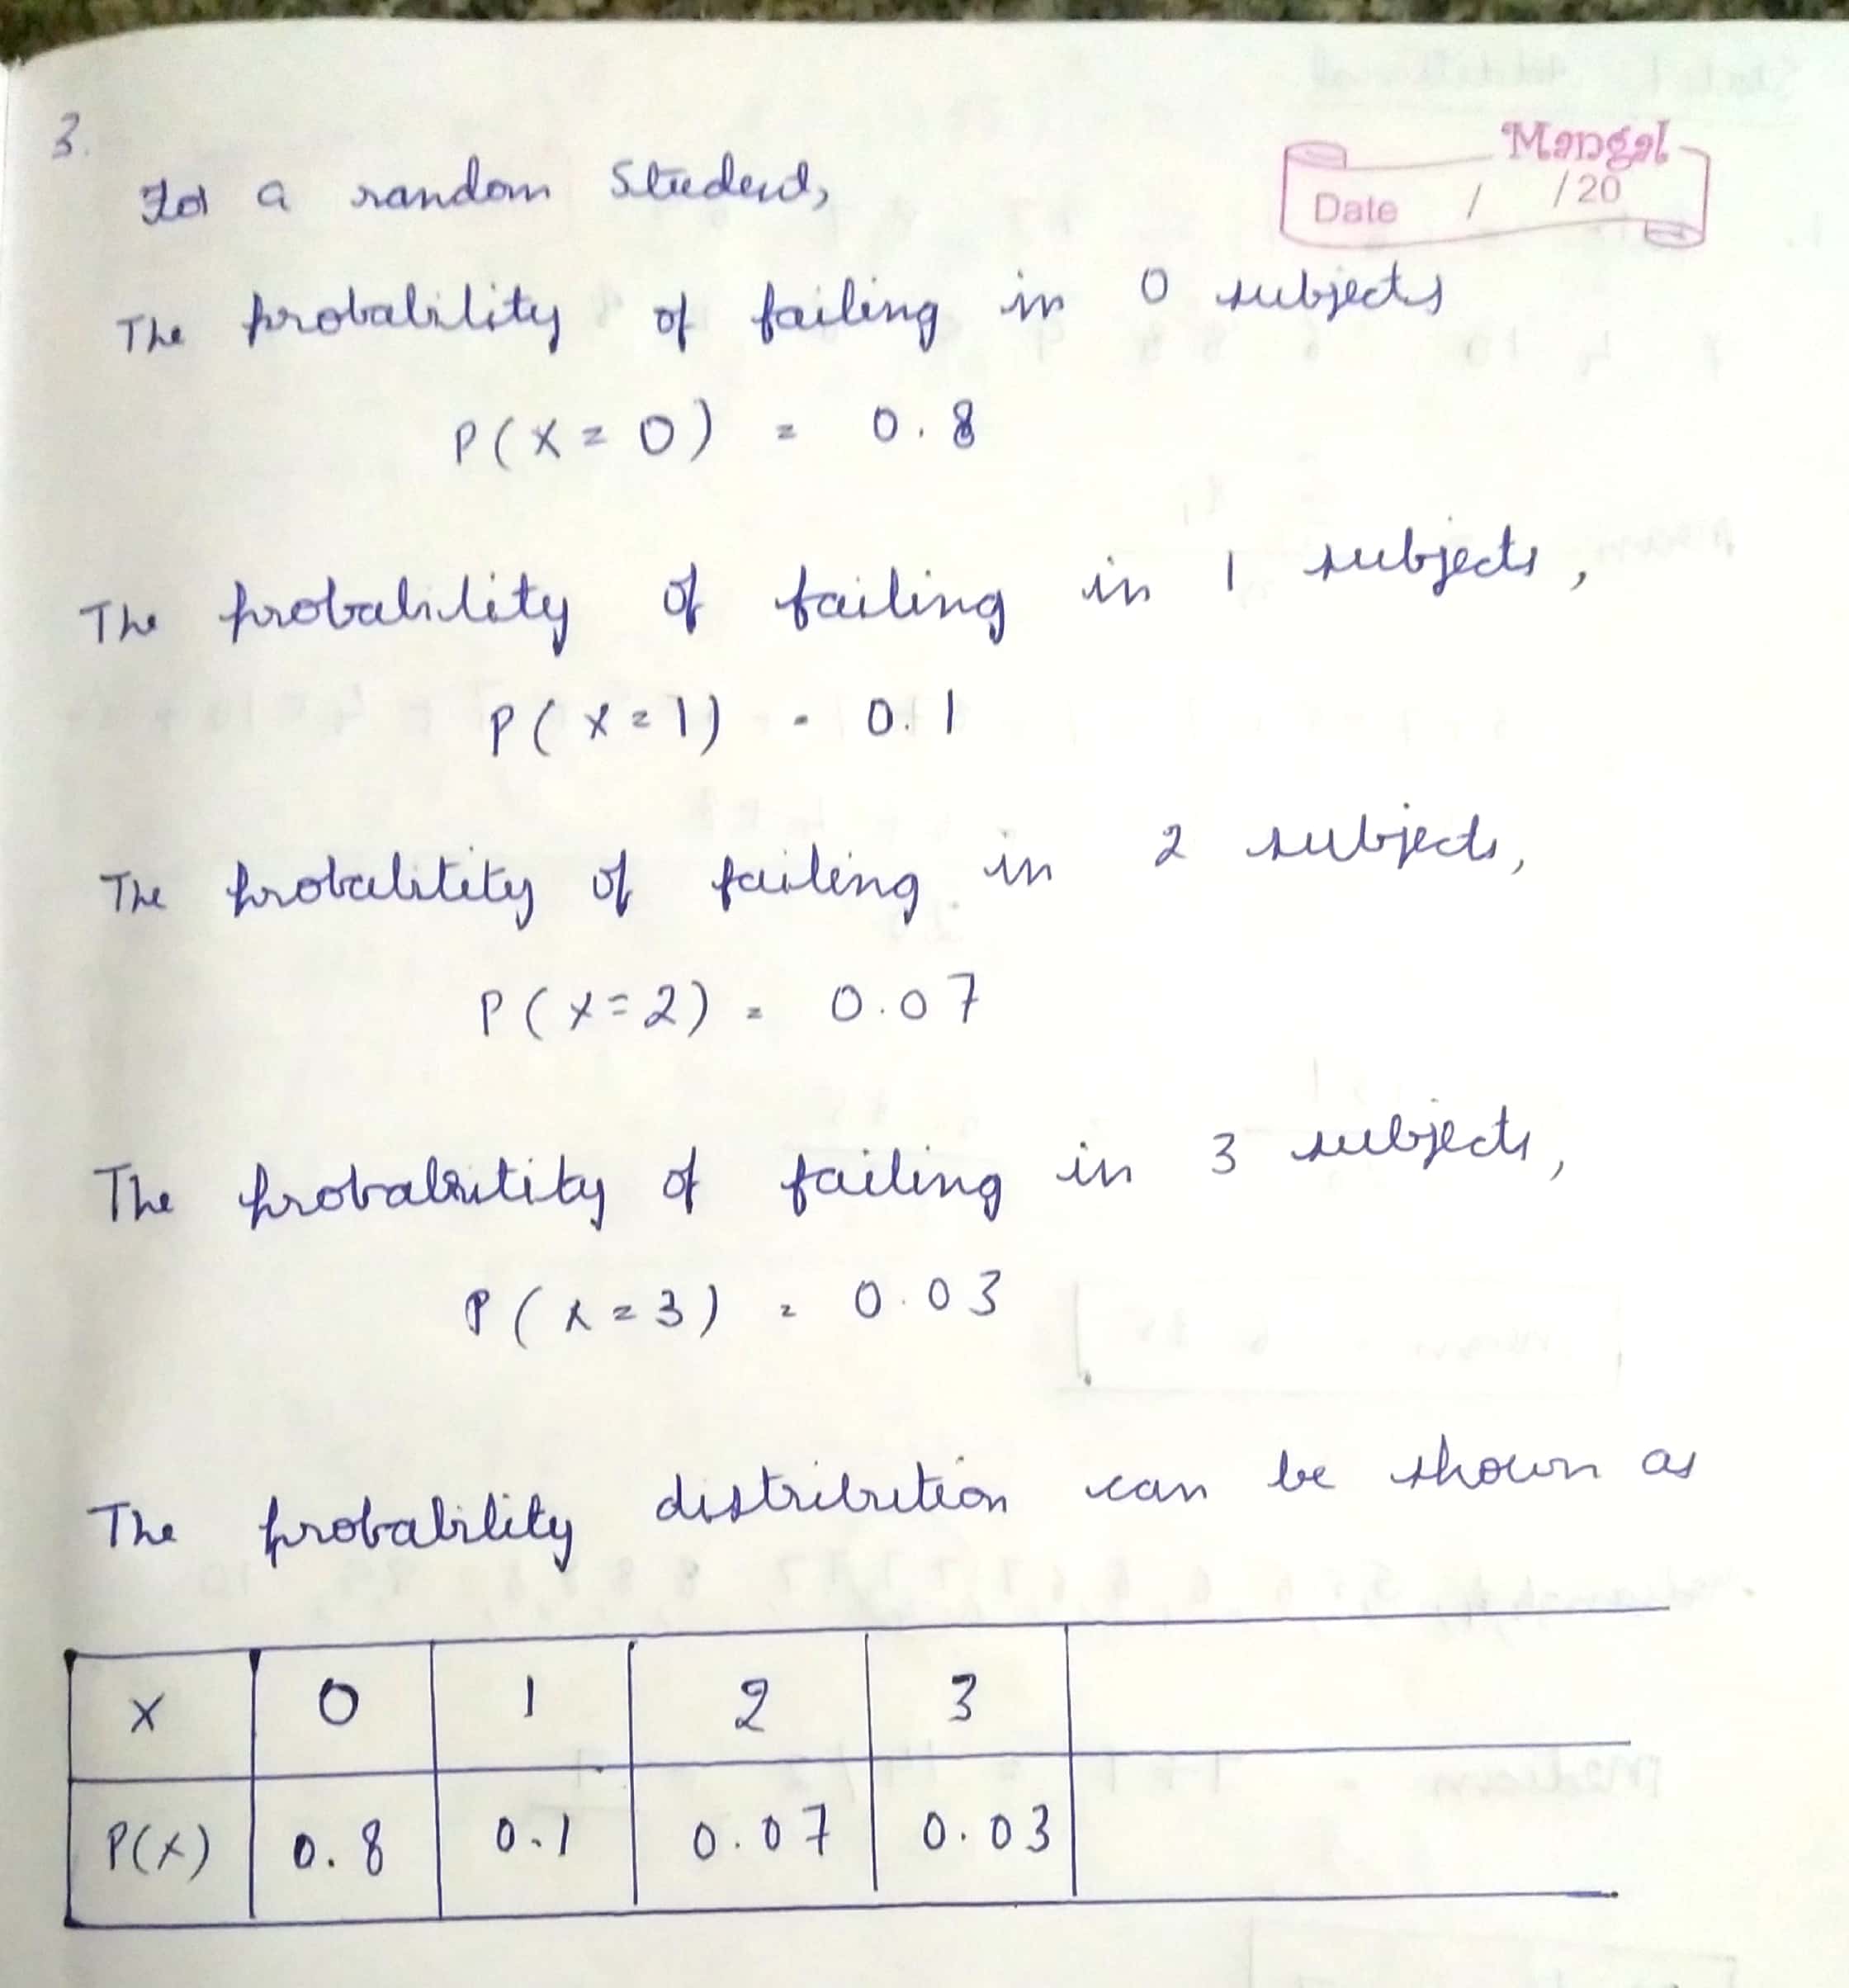 3.
Mangal
Date / /20
For a random Student,
The probability of failing in 0 subjects
P(X=0) = 0.8
The probability of failing in 1 subjects,
P(X=1) = 0.1
The probalitity of failing in 2 subjects,
P(X=2) = 0.07
The probabitity of failing in 3 subjects,
P(X=3) = 0.03
The probability distribution can be shown as
X 0 1 2 3
P(X) 0.8 0.1 0.07 0.03